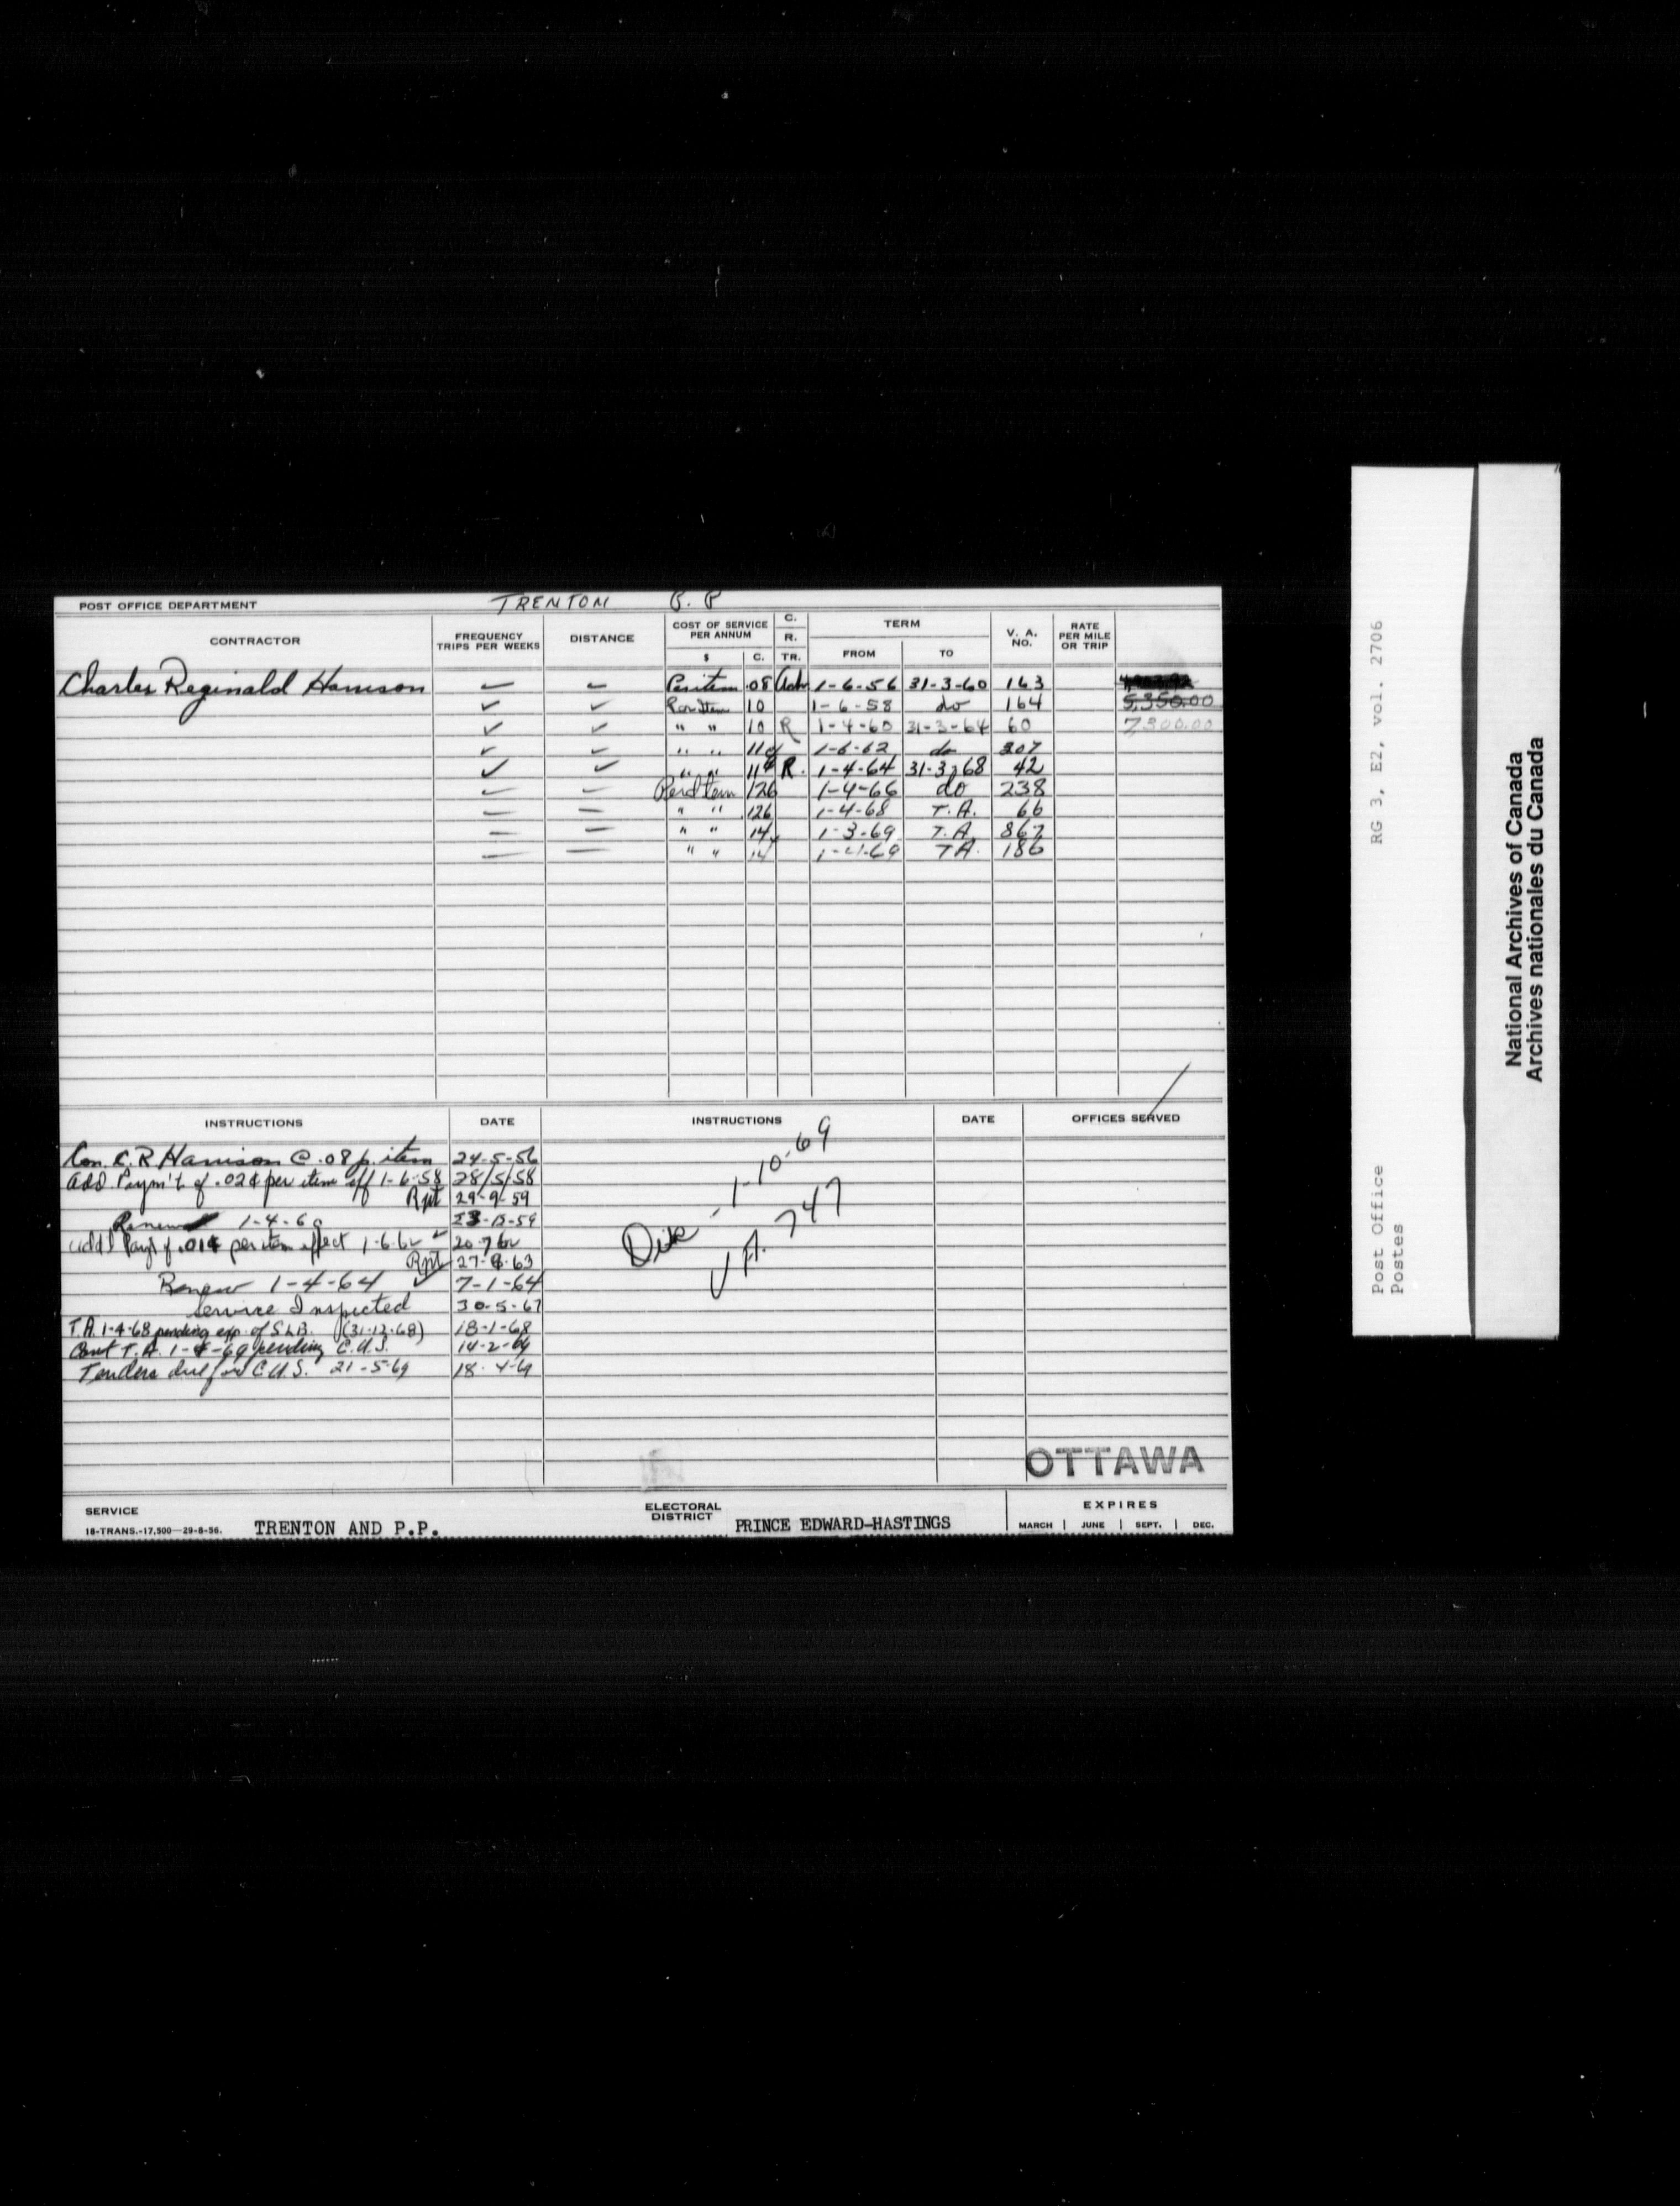 POST OFFICE DEPARTMENT TRENTON P. P
CONTRACTOR FREQUENCY TRIPS PER WEEKS DISTANCE COST OF SERVICE PER ANNUM $ C. C. R. TR. TERM FROM TO V. A. NO. RATE PER MILE OR TRIP
Charles Reginald Harrison Per item .08 1-6-56 31-3-60 163
Per Item 10 1-6-58 do 164 5,350.00
" " 10 R 1-4-60 31-3-64 60 7,300.00
" " 11¢ 1-6-62 do 207
" " 11¢ R. 1-4-64 31-3-68 42
Per Item 12¢ 1-4-66 do 238
" " .12¢ 1-4-68 T.A. 66
" " 14 1-3-69 T.A. 867
" " 14 1-4-69 T.A. 186
INSTRUCTIONS DATE INSTRUCTIONS DATE OFFICES SERVED
Con. C.R Harrison @ .08 p. item 24-5-56
Add Paym't of .02¢ per item eff 1-6-58 28/5/58
Rpt 29-9-59
Renew 1-4-60 23-12-59
Add'l Pay't of .01¢ per item effect 1-6-62 20-7-62
Rpt 27-8-63
Renew 1-4-64 7-1-64
Service Inspected 30-5-67
T.A. 1-4-68 pending exp. of S.L.B. (31-12-68) 18-1-68
Cont T.A. 1-4-69 pending C.U.S. 14-2-69
Tenders due for C.U.S. 21-5-69 18-4-69
Disc - 1-10-69
V.A. 747
OTTAWA
SERVICE
18-TRANS.-17,500—29-8-56. TRENTON AND P.P.
ELECTORAL DISTRICT PRINCE EDWARD-HASTINGS
EXPIRES
MARCH | JUNE | SEPT. | DEC.
Post Office RG 3, E2, vol. 2706
Postes
National Archives of Canada
Archives nationales du Canada